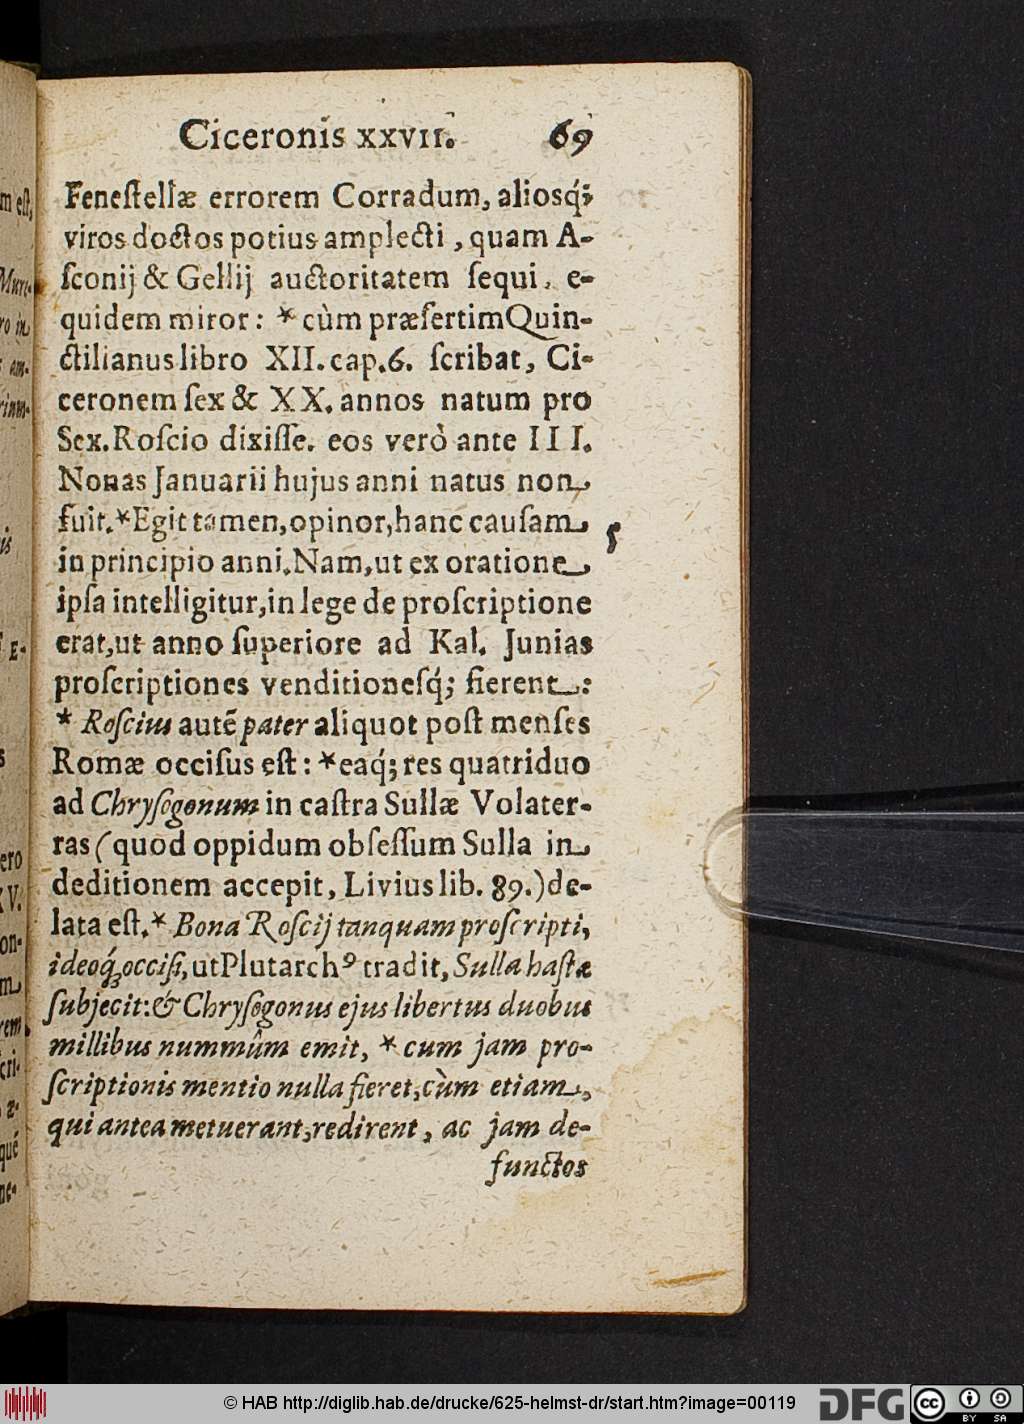 Ciceronis XXVII. 69
Feneſtellæ errorem Corradum, aliosq́;
viros doctos potius amplecti, quam A-
ſconij & Gellij auctoritatem ſequi, e-
quidem miror: * cùm præſertim Quin-
ctilianus libro XII. cap. 6. ſcribat, Ci-
ceronem ſex & XX. annos natum pro
Sex. Roſcio dixiſſe. eos verò ante III.
Nonas Januarii hujus anni natus non
fuit. * Egit tamen, opinor, hanc cauſam
5
in principio anni. Nam, ut ex oratione
ipſa intelligitur, in lege de proſcriptione
erat, ut anno ſuperiore ad Kal. Junias
proſcriptiones venditionesq́; fierent:
* Roſcius autẽ pater aliquot poſt menſes
Romæ occiſus eſt: * eaq́; res quatriduo
ad Chryſogonum in caſtra Sullæ Volater-
ras (quod oppidum obſeſſum Sulla in
deditionem accepit, Livius lib. 89.) de-
lata eſt. * Bona Roſcij tanquam proſcripti,
ideoq́; occiſi, ut Plutarchꝰ tradit, Sulla haſtæ
ſubjecit: & Chryſogonus ejus libertus duobus
millibus nummûm emit, * cum jam pro-
ſcriptionis mentio nulla fieret, cùm etiam,
qui antea metuerant, redirent, ac jam de-
functos
m eſt,
Mure-
ro in
am-
is
E-
ero
XV.
on-
rem
qué
ne-
© HAB http://diglib.hab.de/drucke/625-helmst-dr/start.htm?image=00119
DFG
cc
BY SA